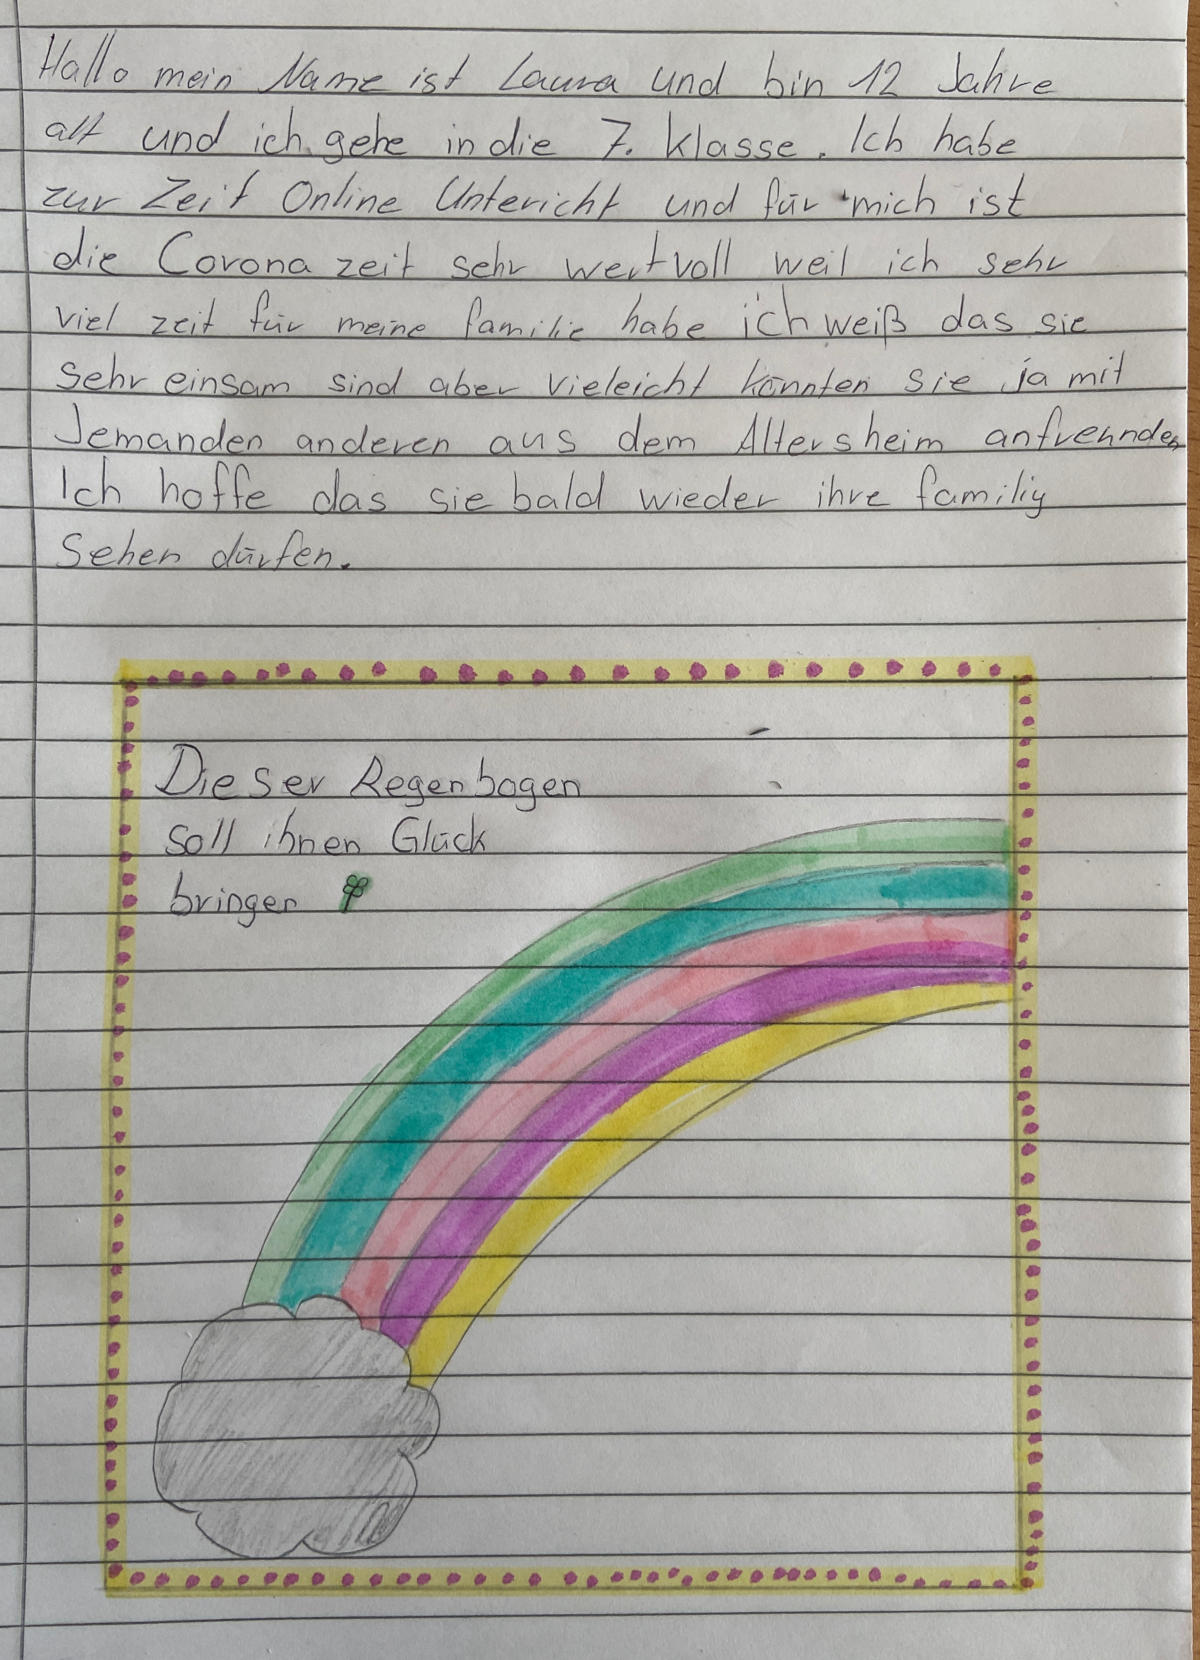 Hallo mein Name ist Laura und bin 12 Jahre
alt und ich gehe in die 7. Klasse. Ich habe
zur Zeit Online Untericht und für mich ist
die Corona zeit sehr wertvoll weil ich sehr
viel zeit für meine familie habe ich weiß das sie
sehr einsam sind aber vieleicht könnten sie ja mit
Jemanden anderen aus dem Altersheim anfreunden
Ich hoffe das sie bald wieder ihre familiy
Sehen dürfen.
Dieser Regenbogen
soll ihnen Glück
bringen